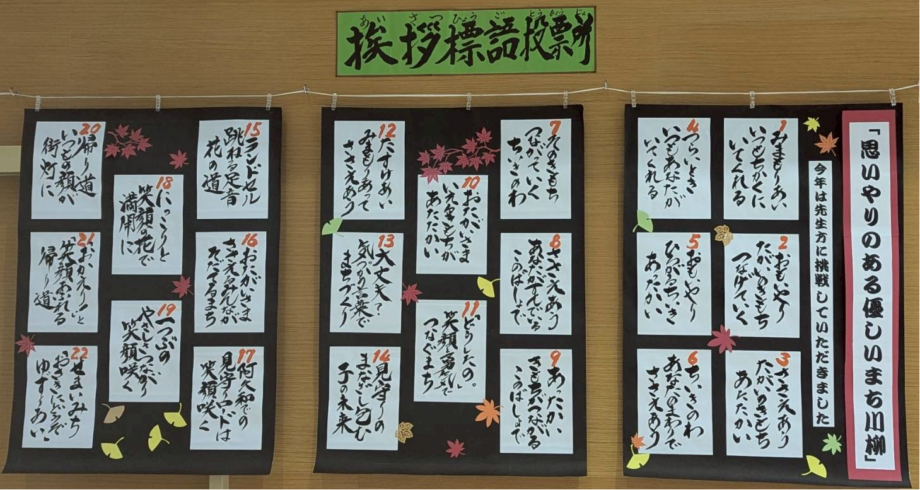 挨拶標語投票所
あいさつひょうごとうひょうじょ
「思いやりのある優しいまち川柳」
今年は先生方に挑戦していただきました
1
みまもりあい
いつもちかくに
いてくれる
2
おもいやり
たがいのきもち
つなげていく
3
ささえあう
たがいのきもち
あたたかい
4
つらいとき
いつもあなたが
いてくれる
5
おもいやり
ひろがるちいき
あたたかい
6
ちいきのわ
あなたのまわりで
ささえあう
7
そのきもち
つなげていく
ちいきのわ
8
ささえあう
あなたがすんでいる
このばしょで
9
あたたかい
きもちがつながる
このばしょで
10
おたがいさま
いえるきもちが
あたたかい
11
どうしたの。
笑顔と勇気で
つなぐまち
12
たすけあい
みまもりあって
ささえあう
13
大丈夫?
気づかう言葉で
まちづくり
14
見守りの
まなざし包む
子の未来
15
ランドセル
跳ねる足音
花の道
16
おたがいさま
ささえるみんなが
そだてるまち
17
何人和での
見守りハンドは
笑顔咲く
18
にっこりと
笑顔の花で
満開に
19
一つぶの
やさしいつながり
笑顔咲く
20
帰り道
いつもの顔が
街灯に
21
「おかえり」と
笑顔あふれる
帰り道
22
せまいみち
おさきにどうぞで
ゆずりあい